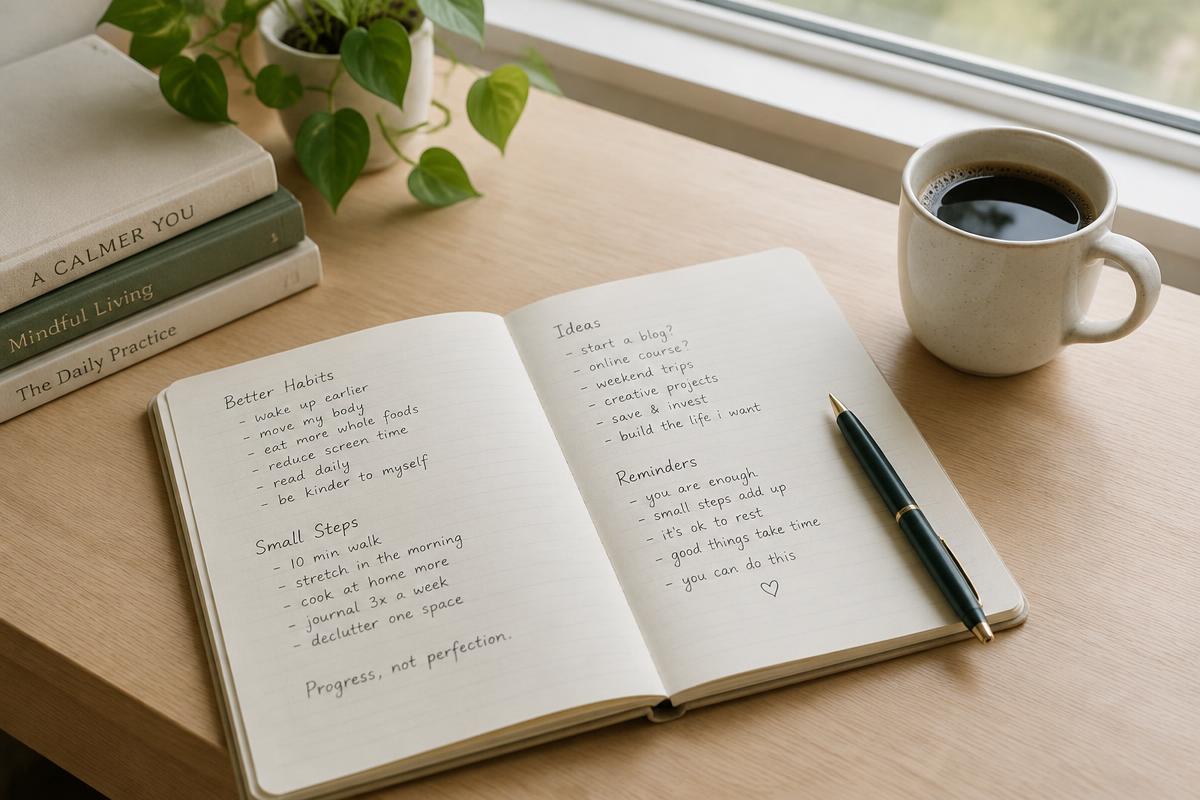 A CALMER YOU
Mindful Living
The Daily Practice
Better Habits
- wake up earlier
- move my body
- eat more whole foods
- reduce screen time
- read daily
- be kinder to myself
Small Steps
- 10 min walk
- stretch in the morning
- cook at home more
- journal 3x a week
- declutter one space
Progress, not perfection.
Ideas
- start a blog?
- online course?
- weekend trips
- creative projects
- save & invest
- build the life i want
Reminders
- you are enough
- small steps add up
- it's ok to rest
- good things take time
- you can do this
♡